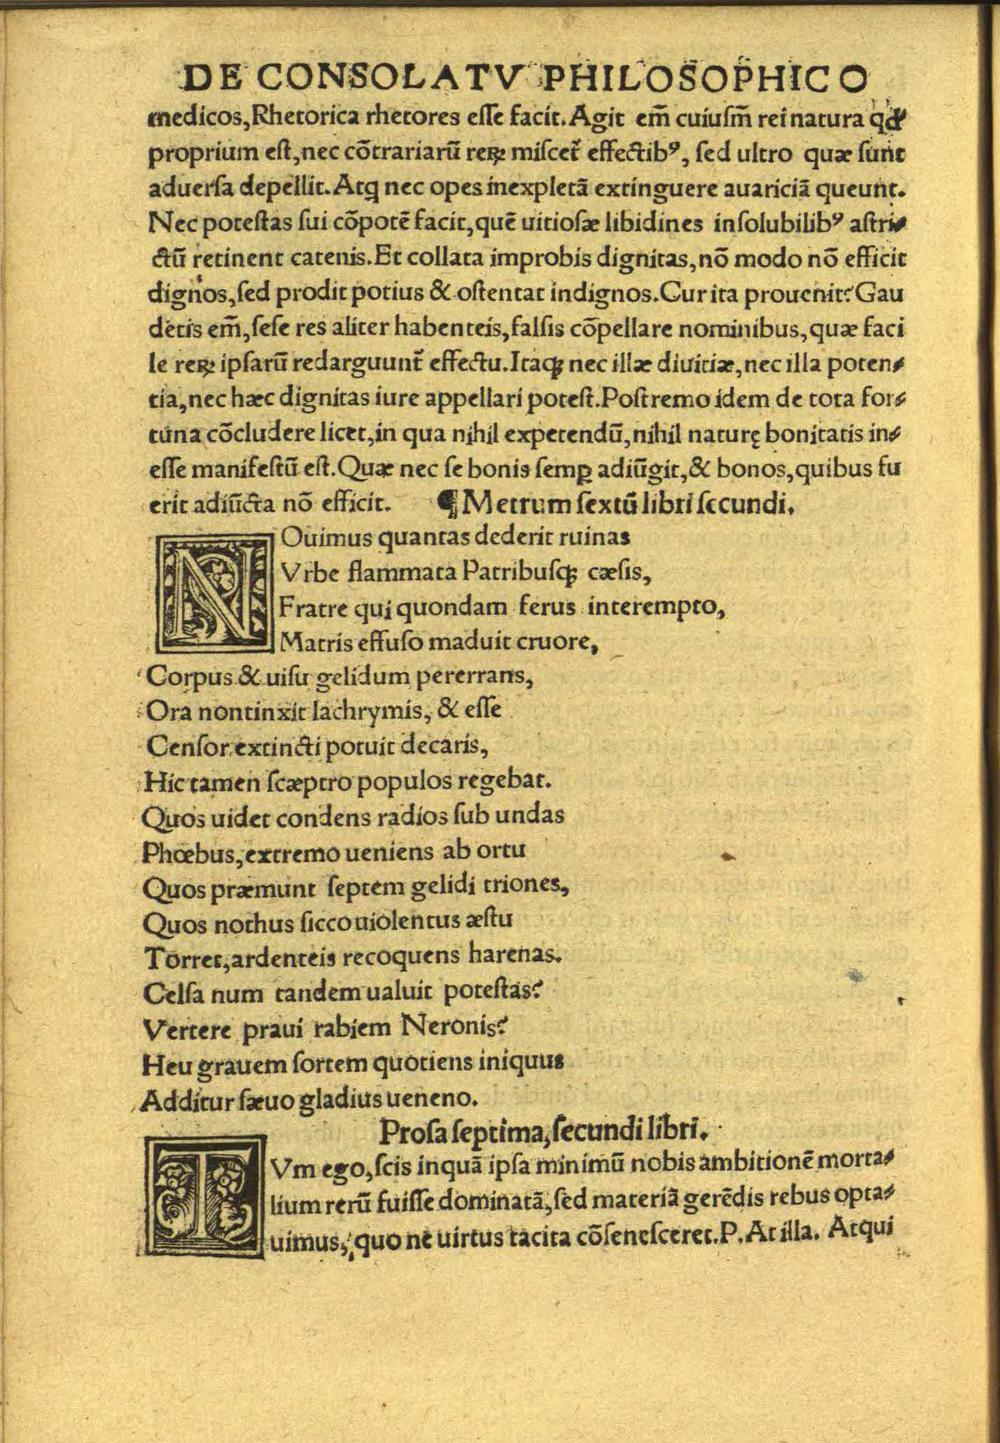 DE CONSOLATV PHILOSOPHICO
medicos,Rhetorica rhetores eſſe facit.Agit em̃ cuiuſm̃ rei natura qđ
proprium eſt,nec cõtrariarũ reꝝ miſcet᷑ effectibꝰ, ſed ultro quæ ſunt
aduerſa depellit.Atq̨ nec opes inexpletã extinguere auariciã queunt.
Nec poteſtas ſui cõpotẽ facit,quẽ uitioſæ libidines inſolubilibꝰ aſtri⸗
ctũ retinent catenis.Et collata improbis dignitas,nõ modo nõ efficit
dignos,ſed prodit potius & oſtentat indignos.Cur ita prouenit?Gau
detis em̃,ſeſe res aliter habenteis,falſis cõpellare nominibus,quæ faci
le reꝝ ipſarũ redarguunt᷑ effectu.Itaqꝫ nec illæ diuitiæ,nec illa poten⸗
tia,nec hæc dignitas iure appellari poteſt.Poſtremo idem de tota for⸗
tuna cõcludere licet,in qua nihil expetendũ,nihil naturę bonitatis in⸗
eſſe manifeſtũ eſt.Quæ nec ſe bonis ſemꝑ adiũgit,& bonos,quibus fu
erit adiũcta nõ efficit. ¶Metrum ſextũ libri ſecundi.
NOuimus quantas dederit ruinas
Vrbe flammata Patribuſqꝫ cæſis,
Fratre qui quondam ferus interempto,
Matris effuſo maduit cruore,
Corpus & uiſu gelidum pererrans,
Ora non tinxit lachrymis, & eſſe
Cenſor extincti potuit decaris,
Hic tamen ſcæptro populos regebat.
Quos uidet condens radios ſub undas
Phœbus,extremo ueniens ab ortu
Quos præmunt ſeptem gelidi triones,
Quos nothus ſicco uiolentus æſtu
Torret,ardenteis recoquens harenas.
Celſa num tandem ualuit poteſtas?
Vertere praui rabiem Neronis?
Heu grauem ſortem quotiens iniquus
Additur ſæuo gladius ueneno.
Proſa ſeptima,ſecundi libri.
TVm ego,ſcis inquã ipſa minimũ nobis ambitionẽ morta⸗
lium rerũ fuiſſe dominatã,ſed materiã gerẽdis rebus opta⸗
uimus, quo ne uirtus tacita cõſeneſceret.P.At illa. Atqui